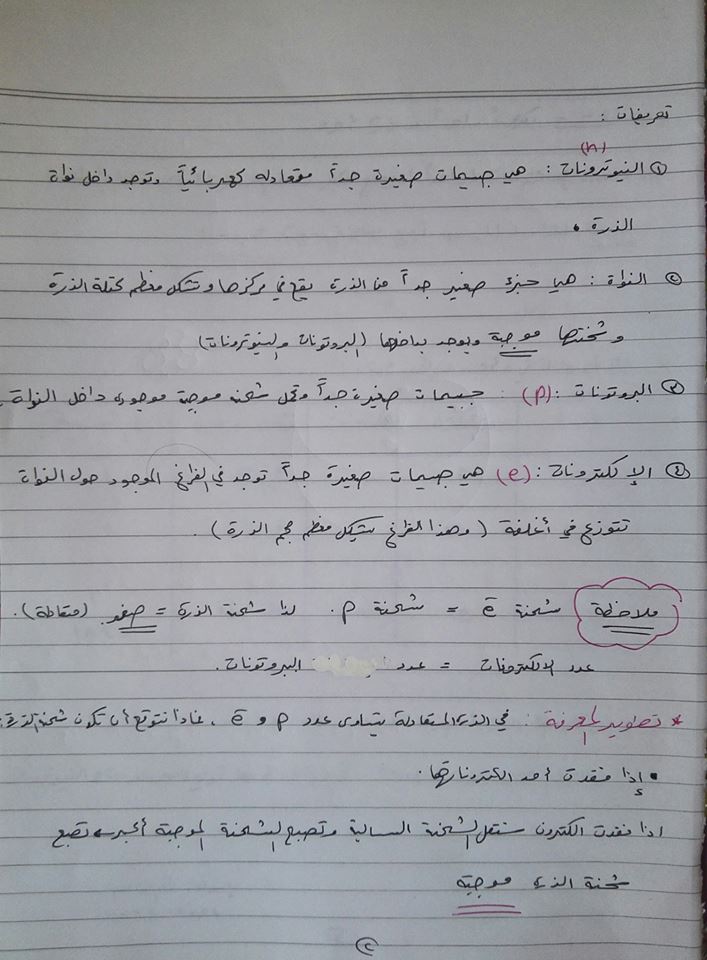 تعريفات :
(n)
① النيوترونات : هي جسيمات صغيرة جداً متعادله كهربائياً وتوجد داخل نواة
الذرة .
② النواة : هي حيزء صغير جداً من الذرة يقع في مركزها وتشكل معظم كتلة الذرة
وشحنتها موجبة ويوجد بداخلها (البروتونات والنيوترونات)
③ البروتونات : (p) : جسيمات صغيرة جداً وتحمل شحنه موجبة موجوده داخل النواة .
④ الإلكترونات : (e) هي جسيمات صغيرة جداً توجد في الفراغ الموجود حول النواة
تتوزع في أغلفة ( وهذا الفراغ يشكل معظم حجم الذرة ) .
ملاحظة شحنة e̅ = شحنة p . لذا شحنة الذرة = صفر (متعادلة) .
عدد الالكترونات = عدد البروتونات .
* تطوير المعرفة : في الذرة المتعادلة يتساوى عدد p و e̅ ، فماذا نتوقع أن تكون شحنة الذرة
• إذا فقدت أحد الكتروناتها .
اذا فقدت الكترون ستقل الشحنة السالبة وتصبح الشحنة الموجبة أكبر تصبح
شحنة الذرة موجبة
②